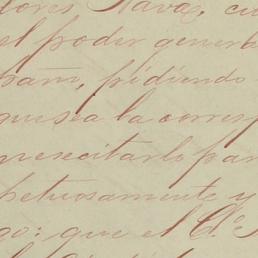 lores Nava, cu
el poder genera
sam, pidiendo
que sea la corres
necesitarlo par
petuosamente y
go: que el C.º